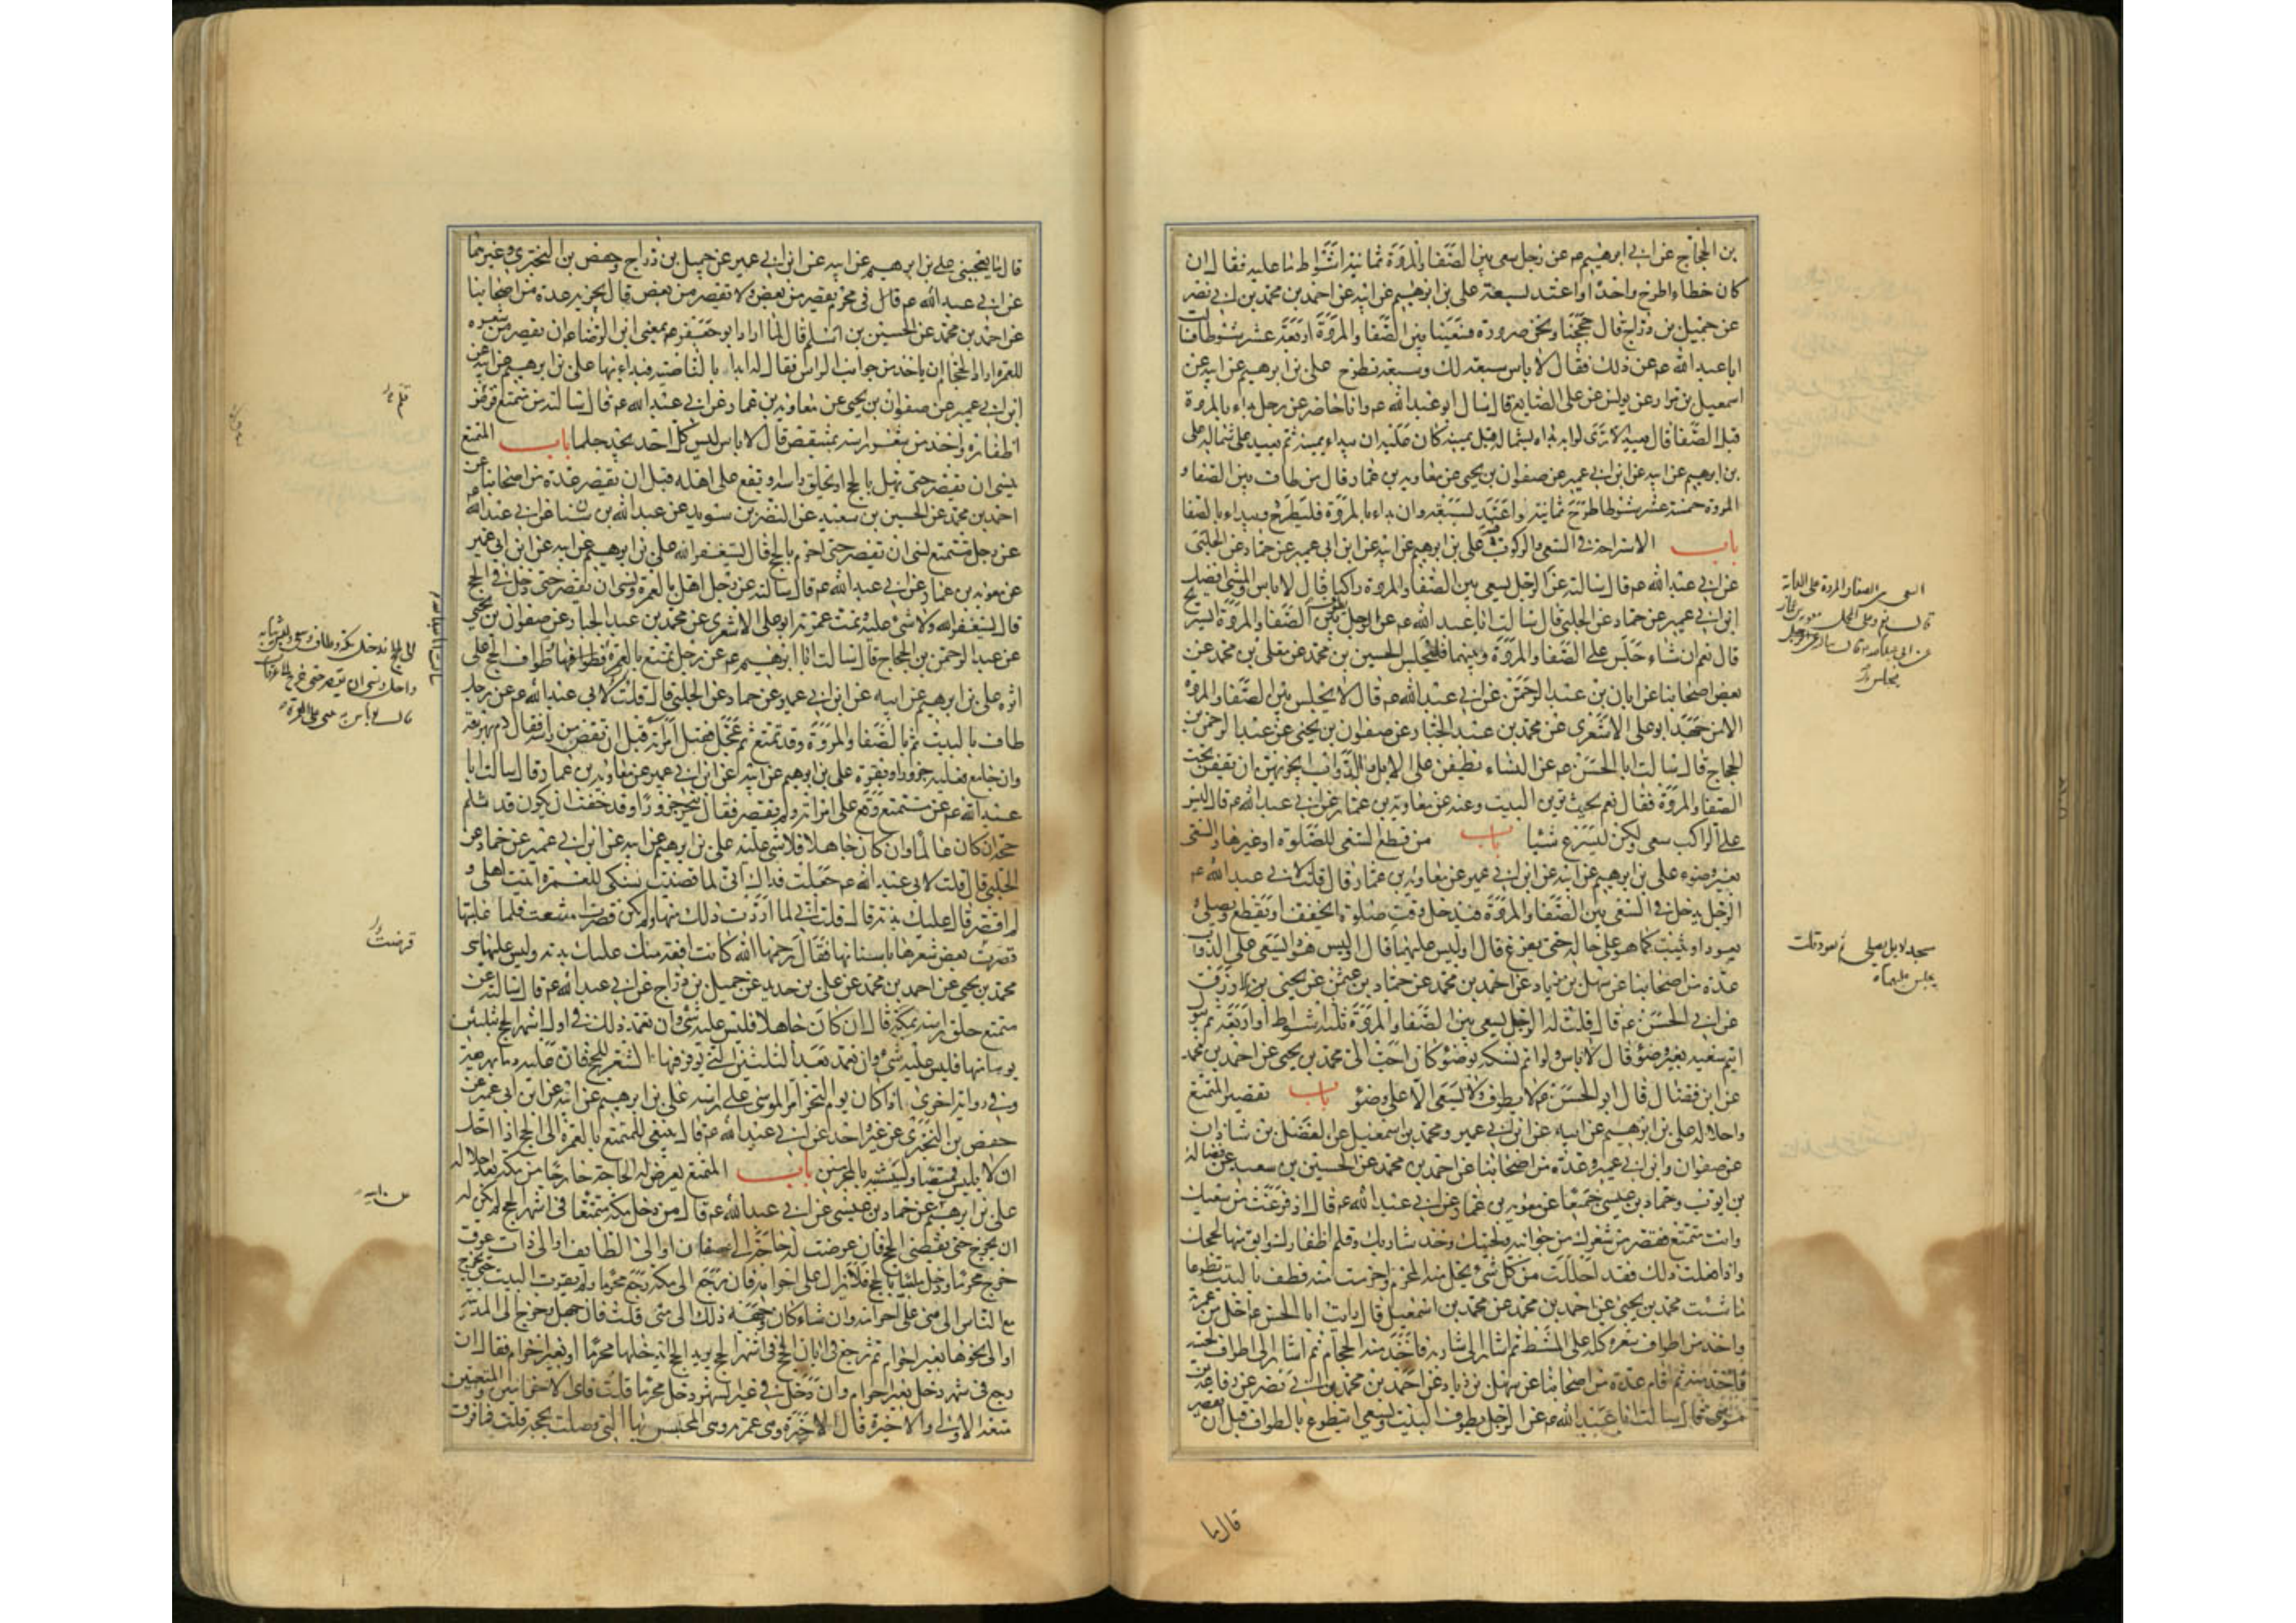 بن الحجاج عن ابى ابرهيم عم عن رجل سعى بين الصفا والمروة ثمانية اشواط ما عليه فقال ان
كان خطاء اطرح واحدا واعتد بسبعة على بن ابرهيم عن ابيه عن احمد بن محمد بن ابى نصر
عن جميل بن دراج قال حججنا ونحن صرورة فسعينا بين الصفا والمروة اربعة عشر شوطا فسالت
ابا عبد الله عم عن ذلك فقال لا باس سبعة لك وسبعة تطرح على بن ابرهيم عن ابيه عن
اسمعيل بن مرار عن يونس عن على الصايغ قال سال ابو عبد الله عم وانا حاضر عن رجل بداء بالمروة
قبل الصفا قال يعيد الا ترى لو انه بداء بشماله قبل يمينه كان عليه ان يبداء بيمينه ثم يعيد على شماله على
بن ابرهيم عن ابيه عن ابن ابى عمير عن صفوان بن يحيى عن معاوية بن عمار قال من طاف بين الصفا و
المروة خمسة عشر شوطا طرح ثمانية واعتد بسبعة وان بداء بالمروة فليطرح ويبداء بالصفا
باب الاستراحة فى السعى والركوب فيه على بن ابرهيم عن ابيه عن ابن ابى عمير عن حماد عن الحلبى
عن ابى عبد الله عم قال سالته عن الرجل يسعى بين الصفا والمروة راكبا قال لا باس والمشى افضل
ابن ابى عمير عن حماد عن الحلبى قال سالت ابا عبد الله عم عن الرجل يطوف بين الصفا والمروة ايستريح
قال نعم ان شاء جلس على الصفا والمروة وبينهما فليجلس الحسين بن محمد عن معلى بن محمد عن
بعض اصحابنا عن ابان بن عبد الرحمن عن ابى عبد الله عم قال لا يجلس بين الصفا والمروة
الا من جهد ابو على الاشعرى عن محمد بن عبد الجبار عن صفوان بن يحيى عن عبد الرحمن بن
الحجاج قال سالت ابا الحسن عم عن النساء يطفن على الابل والدواب ايجزيهن ان يقفن تحت
الصفا والمروة فقال نعم بحيث يرين البيت وعنه عن معاوية بن عمار عن ابى عبد الله عم قال ليس
على الراكب سعى ولكن ليسرع شيئا باب من قطع السعى للصلوة او غيرها والسعى
بغير وضوء على بن ابرهيم عن ابيه عن ابن ابى عمير عن معاوية بن عمار قال قلت لابى عبد الله عم
الرجل يدخل فى السعى بين الصفا والمروة فيدخل وقت صلوة ايخفف او يقطع ويصلى و
يعود او يثبت كما هو على حاله حتى يفرغ قال اوليس عليهما قال اوليس هو السعى على الدواب
عدة من اصحابنا عن سهل بن زياد عن احمد بن محمد عن حماد بن عثمن عن يحيى بن الازرق
عن ابى الحسن عم قال قلت له الرجل يسعى بين الصفا والمروة ثلثة اشواط او اربعة ثم يبول
ايتم سعيه بغير وضوء قال لا باس ولو اتم نسكه بوضوء كان احب الى محمد بن يحيى عن احمد بن محمد
عن ابن فضال قال قال ابو الحسن عم لا يطوف ولا يسعى الا على وضوء باب تقصير المتمتع
واحلاله على بن ابرهيم عن ابيه عن ابن ابى عمير ومحمد بن اسمعيل عن الفضل بن شاذان
عن صفوان وابن ابى عمير وعدة من اصحابنا عن احمد بن محمد عن الحسين بن سعيد عن فضالة
بن ايوب وحماد بن عيسى جميعا عن معوية بن عمار عن ابى عبد الله عم قال اذ فرغت من سعيك
وانت متمتع فقصر من شعرك من جوانبه ولحيتك وخذ شاربك وقلم اظفارك وابق منها لحجك
واذا فعلت ذلك فقد احللت من كل شئ يحل منه المحرم واحرمت منه فطف بالبيت تطوعا
ما شئت محمد بن يحيى عن احمد بن محمد عن محمد بن اسمعيل قال رايت ابا الحسن عم احل من عمرة
واخذ من اطراف شعره كله على المشط ثم اشار الى شاربه فاخذ منه الحجام ثم اشار الى اطراف لحيته
فاخذ منه ثم قام عدة من اصحابنا عن سهل بن زياد عن احمد بن محمد بن ابى نصر عن رفاعة بن
موسى قال سالت ابا عبد الله عم عن الرجل يطوف البيت ويسعى ايتطوع بالطواف قبل ان يقصر
قال ما
قال ما يعجبنى على بن ابرهيم عن ابيه عن ابن ابى عمير عن جميل بن دراج وحفص بن البخترى وغيرهما
عن ابى عبد الله عم قال فى محرم يقصر من بعض ولا يقصر من بعض قال يجزيه عدة من اصحابنا
عن احمد بن محمد عن الحسين بن اسلم قال لما اراد ابو جعفر عم يعنى ابن الرضاء ان يقصر من شعره
للعمرة اراد الحجام ان ياخذ من جوانب الراس فقال له ابدا بالناصية فبداء بها على بن ابرهيم عن ابيه عن
ابن ابى عمير عن صفوان بن يحيى عن معاوية بن عمار عن ابى عبد الله عم قال سالته عن متمتع قرض
اظفاره واخذ من شعر راسه بمشقص قال لا باس ليس كل احد يجد جلما باب المتمتع
ينسى ان يقصر حتى يهل بالحج او يحلق راسه او يقع على اهله قبل ان يقصر عدة من اصحابنا عن
احمد بن محمد عن الحسين بن سعيد عن النضر بن سويد عن عبد الله بن سنان عن ابى عبد الله عم
عن رجل متمتع نسى ان يقصر حتى احرم بالحج قال يستغفر الله على بن ابرهيم عن ابيه عن ابن ابى عمير
عن معوية بن عمار عن ابى عبد الله عم قال سالته عن رجل اهل بالعمرة ونسى ان يقصر حتى دخل فى الحج
قال يستغفر الله ولا شئ عليه وتمت عمرته ابو على الاشعرى عن محمد بن عبد الجبار عن صفوان بن يحيى
عن عبد الرحمن بن الحجاج قال سالت ابا ابرهيم عم عن رجل تمتع بالعمرة فطوافها طواف الحج على
اثره على بن ابرهيم عن ابيه عن ابن ابى عمير عن حماد عن الحلبى قال قلت لابى عبد الله عم عن رجل
طاف بالبيت ثم بالصفا والمروة وقد تمتع ثم عجل فقبل امراته قبل ان يقصر من راسه فقال دم يهريقه
وان جامع فعليه جزور او بقرة على بن ابرهيم عن ابيه عن ابن ابى عمير عن معاوية بن عمار قال سالت ابا
عبد الله عم عن متمتع وقع على امراته ولم يقصر فقال ينحر جزورا وقد خفت ان يكون قد ثلم
حجه ان كان عالما وان كان جاهلا فلا شئ عليه على بن ابرهيم عن ابيه عن ابن ابى عمير عن حماد عن
الحلبى قال قلت لابى عبد الله عم جعلت فداك انى لما قضيت نسكى للعمرة اتيت اهلى و
لم اقصر قال عليك بدنة قال قلت انى لما اردت ذلك منها ولم يكن قصرت امتنعت فلما غلبتها
قصرت بعض شعرها باسنانها فقال رحمها الله كانت افقه منك عليك بدنة وليس عليها شئ
محمد بن يحيى عن احمد بن محمد عن على بن حديد عن جميل بن دراج عن ابى عبد الله عم قال سالته عن
متمتع حلق راسه بمكة قال ان كان جاهلا فليس عليه شئ وان تعمد ذلك فى اول اشهر الحج بثلثين
يوما منها فليس عليه شئ وان تعمد بعد الثلثين التى يوفر فيها الشعر للحج فان عليه دما يهريقه
وفى رواية اخرى اذا كان يوم النحر امر الموسى على راسه على بن ابرهيم عن ابيه عن ابن ابى عمير عن
حفص بن البخترى عن غير واحد عن ابى عبد الله عم قال ينبغى للمتمتع بالعمرة الى الحج اذا احل
ان لا يلبس قميصا وليتشبه بالمحرمين باب المتمتع يعرض له الحاجة خارجا من مكة بعد احلاله
على بن ابرهيم عن حماد بن عيسى عن ابى عبد الله عم قال من دخل مكة متمتعا فى اشهر الحج لم يكن له
ان يخرج حتى يقضى الحج فان عرضت له حاجة الى عسفان او الى الطايف او الى ذات عرق
خرج محرما ودخل ملبيا بالحج فلا يزال على احرامه فان رجع الى مكة رجع محرما ولم يقرب البيت حتى يخرج
مع الناس الى منى على احرامه وان شاء كان وجهه ذلك الى منى قلت فان جهل وخرج الى المدينة
او الى نحوها بغير احرام ثم رجع فى ابان الحج فى اشهر الحج يريد الحج ايدخلها محرما او بغير احرام فقال ان
رجع فى شهره دخل بغير احرام وان دخل فى غير الشهر دخل محرما قلت فاى الاحرامين والمتعتين
متعة الاولى والاخيرة قال الاخيرة وهى عمرته وهى المحتبس بها التى وصلت بحجه قلت فما فرق